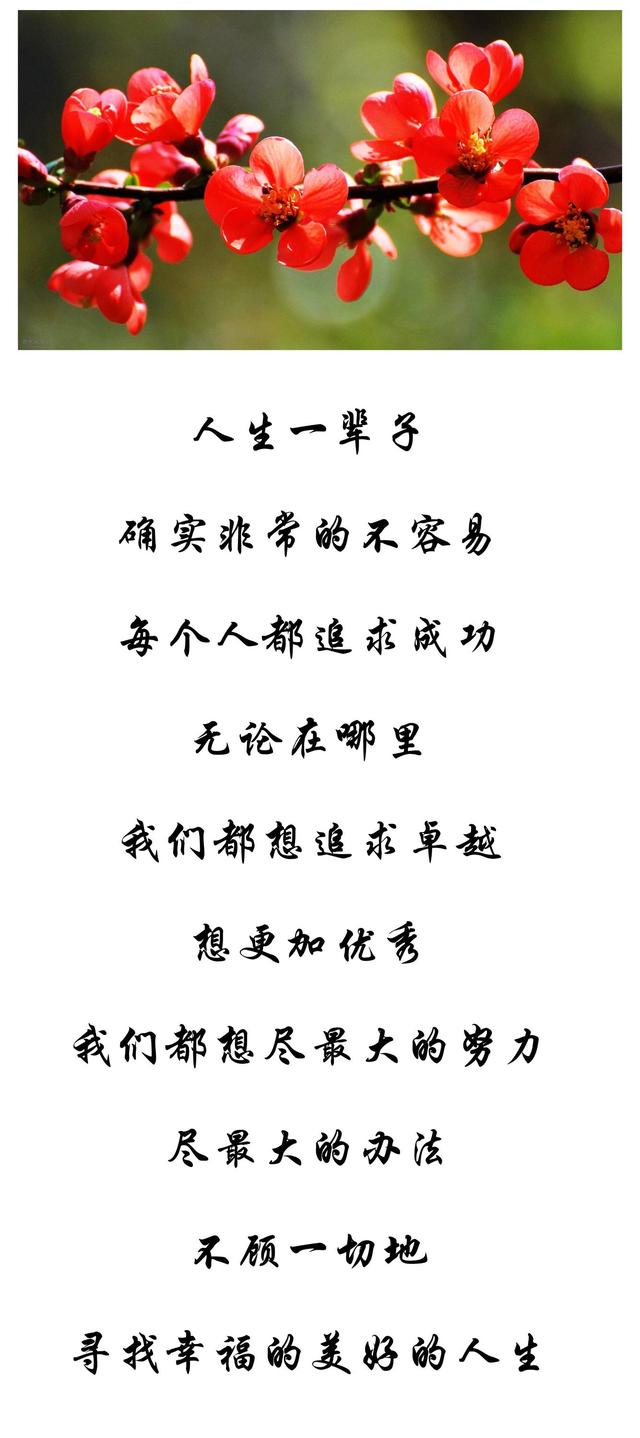 人生一辈子
确实非常的不容易
每个人都追求成功
无论在哪里
我们都想追求卓越
想更加优秀
我们都想尽最大的努力
尽最大的办法
不顾一切地
寻找幸福的美好的人生